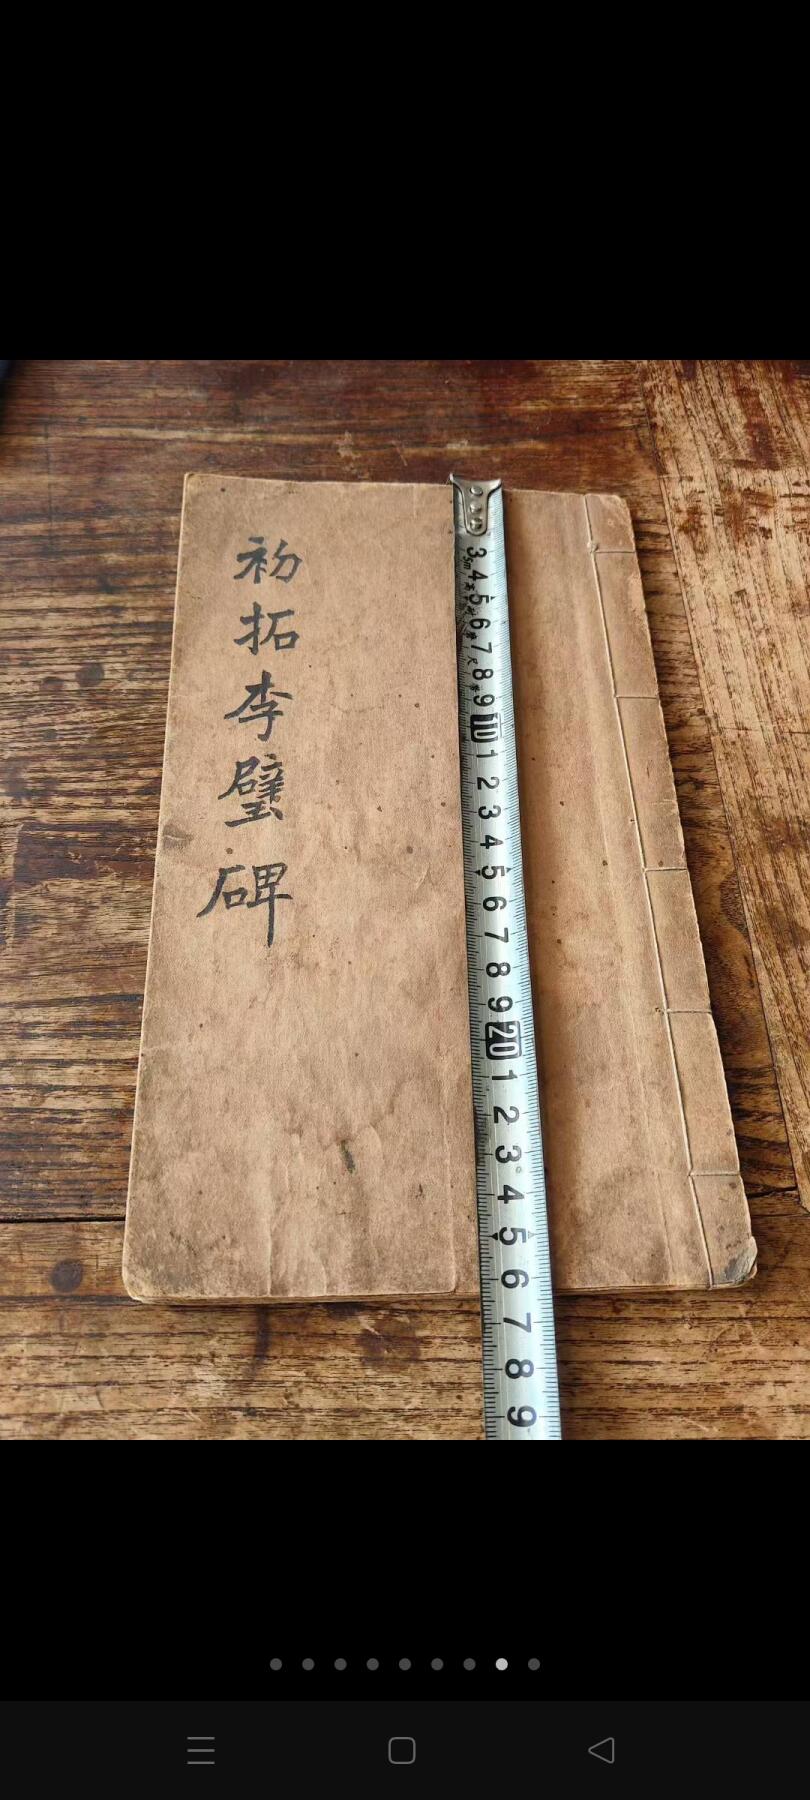 初拓李璧碑
3 4 5 6 7 8 9 10 1 2 3 4 5 6 7 8 9 20 1 2 3 4 5 6 7 8 9
5m